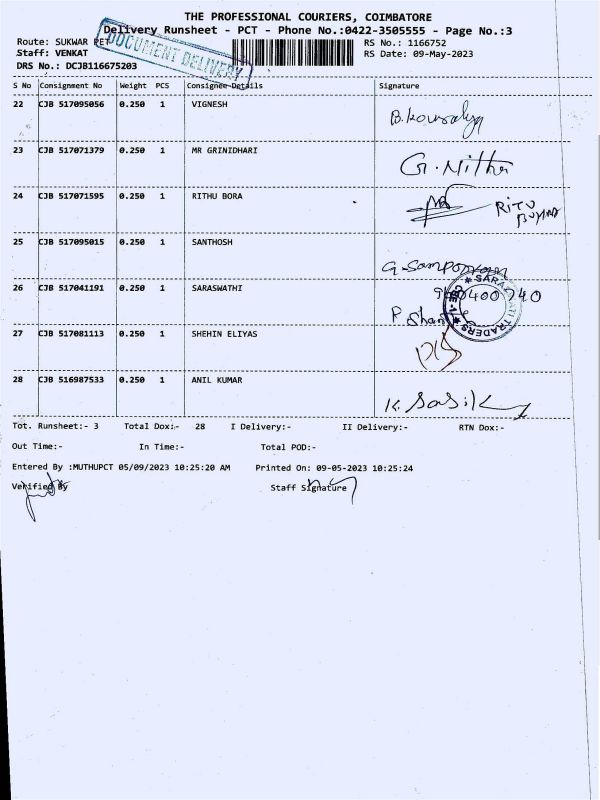 THE PROFESSIONAL COURIERS, COIMBATORE
Delivery Runsheet - PCT - Phone No.:0422-3505555 - Page No.:3
Route: SUKWAR PET
RS No.: 1166752
Staff: VENKAT
RS Date: 09-May-2023
DRS No.: DCJB116675203
DOCUMENT DELIVERY
S No Consignment No Weight PCS Consignee Details Signature
22 CJB 517095056 0.250 1 VIGNESH
23 CJB 517071379 0.250 1 MR GRINIDHARI G. Nithu
24 CJB 517071595 0.250 1 RITHU BORA RITU
25 CJB 517095015 0.250 1 SANTHOSH
26 CJB 517041191 0.250 1 SARASWATHI
27 CJB 517081113 0.250 1 SHEHIN ELIYAS
28 CJB 516987533 0.250 1 ANIL KUMAR
Tot. Runsheet:- 3 Total Dox:- 28 I Delivery:- II Delivery:- RTN Dox:-
Out Time:- In Time:- Total POD:-
Entered By :MUTHUPCT 05/09/2023 10:25:20 AM Printed On: 09-05-2023 10:25:24
Verified By Staff Signature